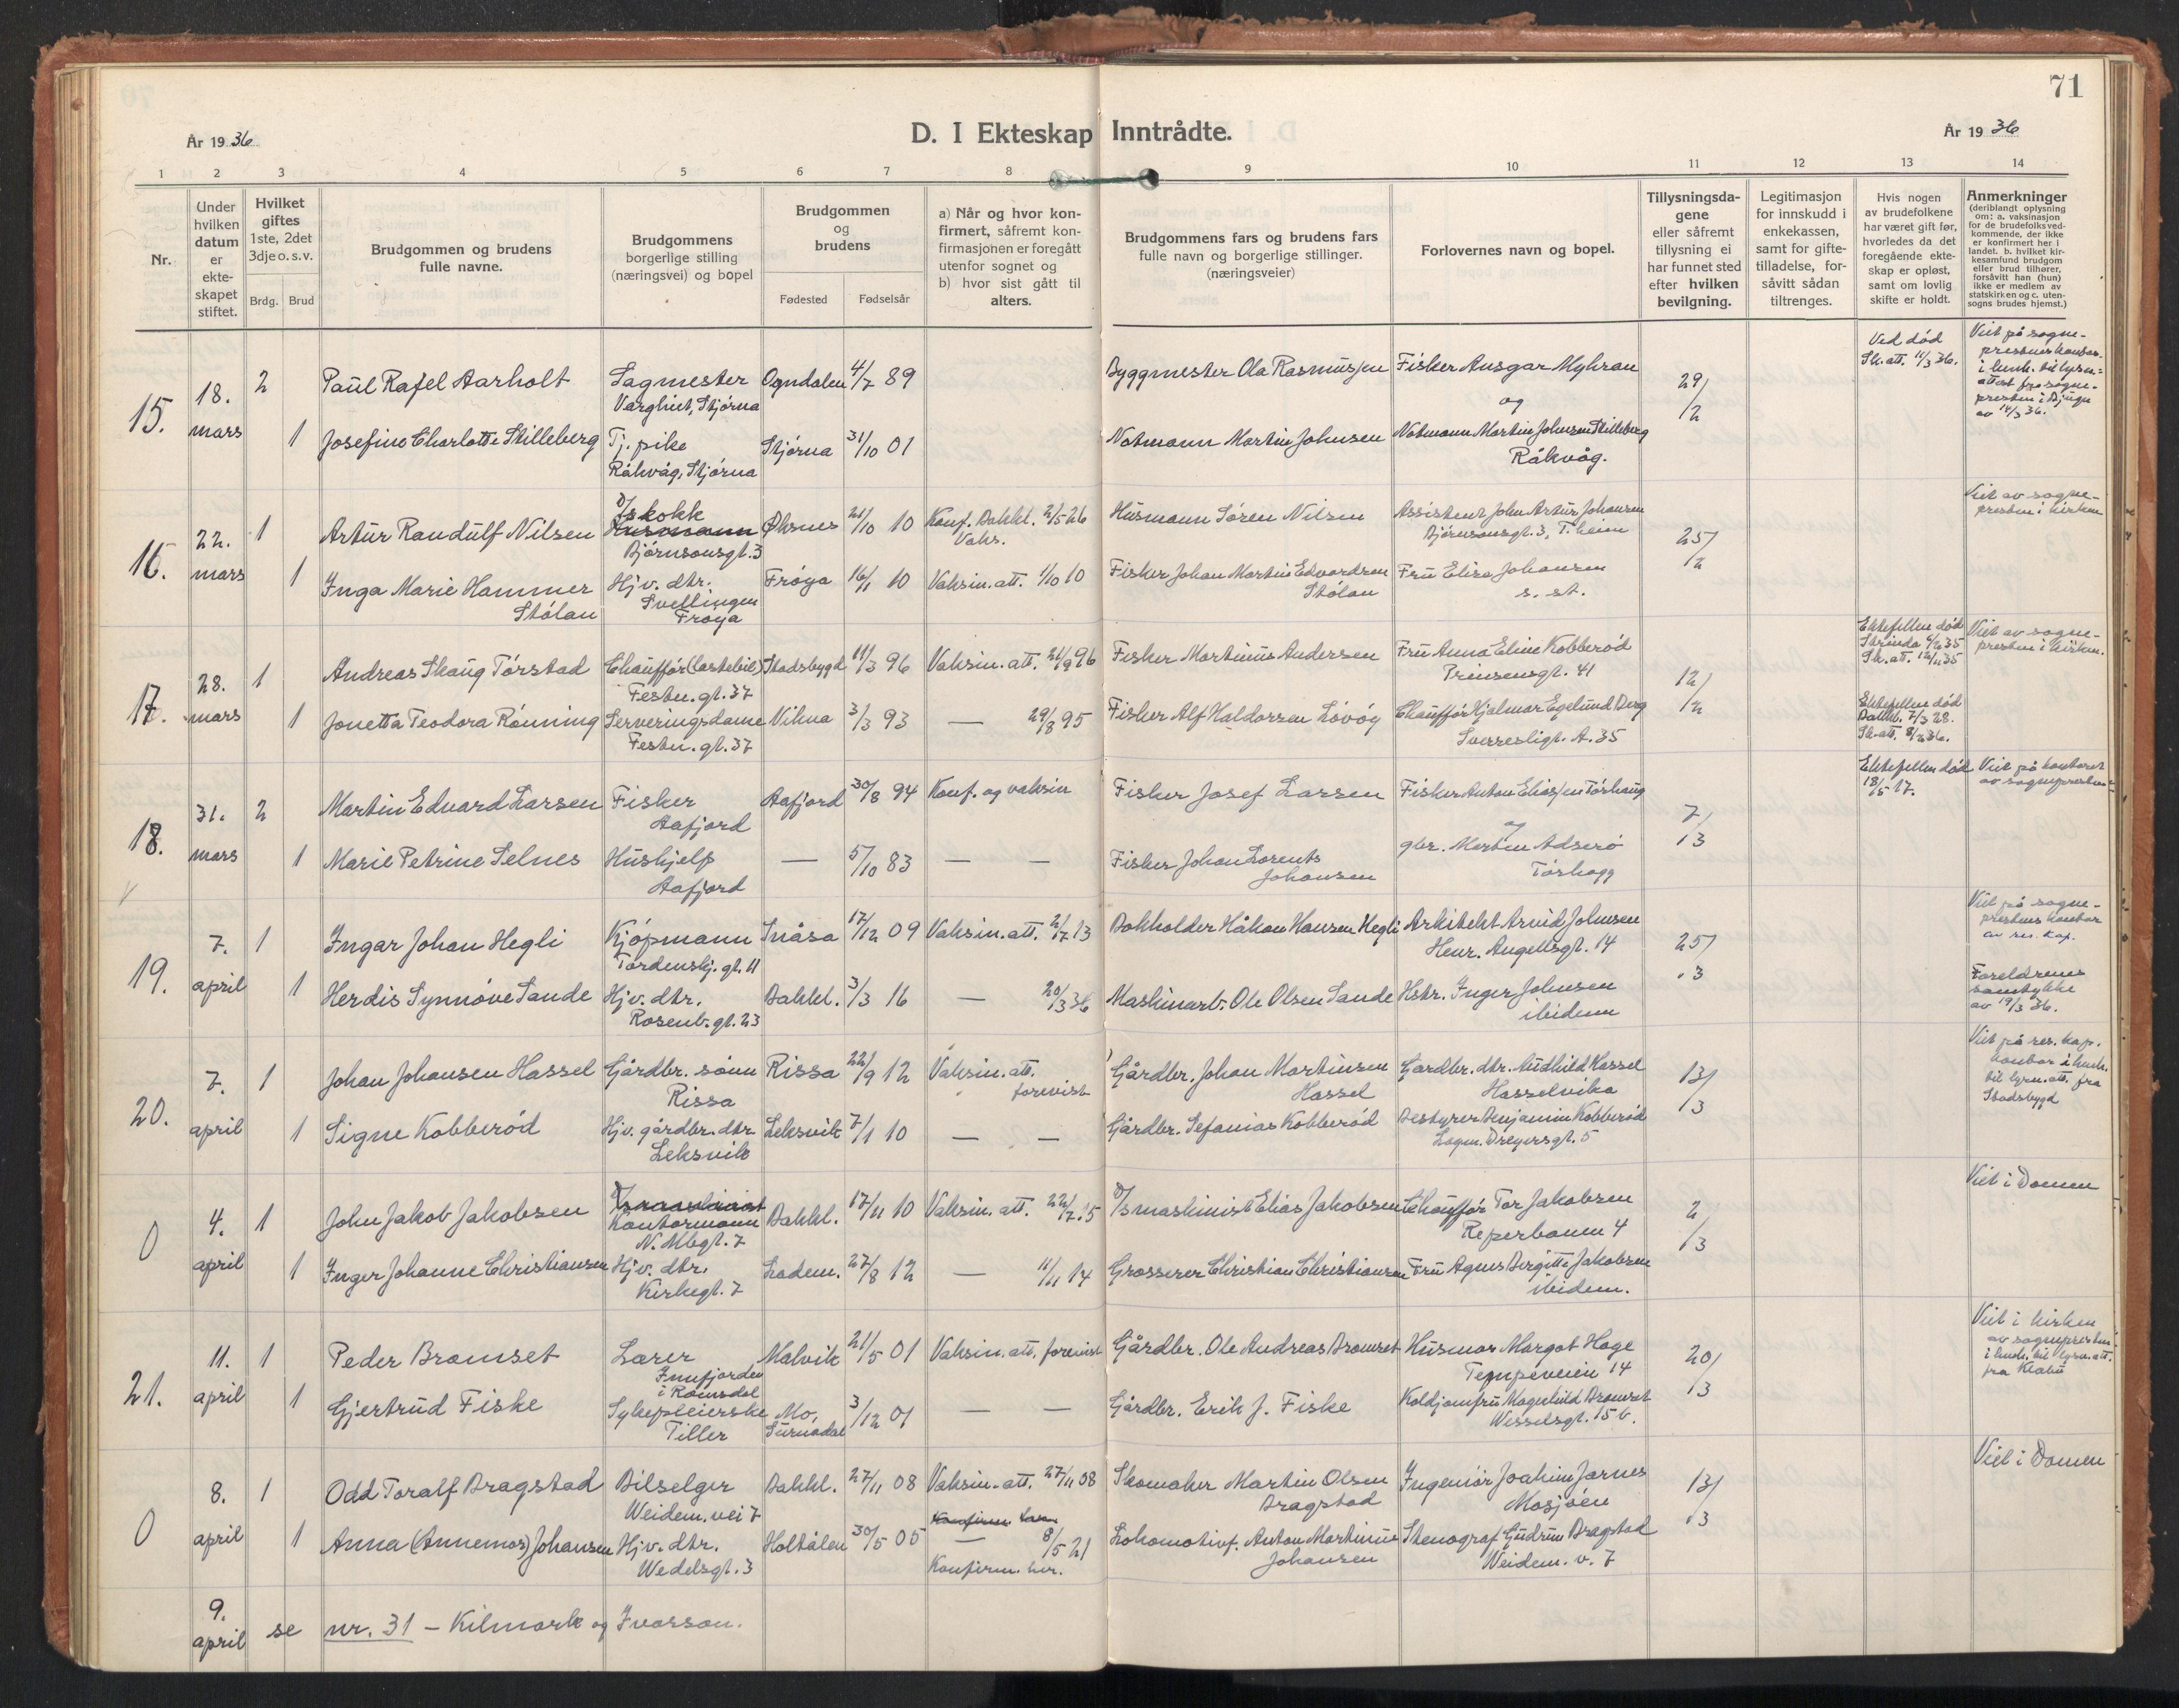 71
År 1936
D. I Ekteskap Inntrådte.
År 1936
1 2 3 4 5 6 7 8 9 10 11 12 13 14
Nr.
Under hvilken datum er ekteskapet stiftet.
Hvilket giftes 1ste, 2det 3dje o. s. v.
Brdg. Brud
Brudgommen og brudens fulle navne.
Brudgommens borgerlige stilling (næringsvei) og bopel
Brudgommen og brudens
Fødested Fødselsår
a) Når og hvor konfirmert, såfremt konfirmasjonen er foregått utenfor sognet og
b) hvor sist gått til alters.
Brudgommens fars og brudens fars fulle navn og borgerlige stillinger. (næringsveier)
Forlovernes navn og bopel.
Tillysningsdagene eller såfremt tillysning ei har funnet sted efter hvilken bevilgning.
Legitimasjon for innskudd i enkekassen, samt for giftetilladelse, forsåvitt sådan tiltrenges.
Hvis nogen av brudefolkene har været gift før, hvorledes da det foregående ekteskap er opløst, samt om lovlig skifte er holdt.
Anmerkninger (deriblandt oplysning om: a. vaksinasjon for de brudefolksvedkommende, der ikke er konfirmert her i landet. b. hvilket kirkesamfund brudgom eller brud tilhører, forsåvitt han (hun) ikke er medlem av statskirken og c. utensogns brudes hjemst.)
15. 18. mars 2 Paul Rafel Aarholt Sagmester Varghiet, Stjørna Ogndalen 4/7 89 Byggmester Ola Rasmussen Fisker Ansgar Myhran og 29/2 Ved død Sk. att. 11/3 36. Viet på sogneprestens kontor i henh. til lysn.attest fra sognepresten i Bjugn av 14/3 36.
1 Josefine Charlotte Stilleberg Tj. pike Råkvåg, Stjørna Stjørna 31/10 01 Notmann Martin Johnsen Notmann Martin Johnsen Stilleberg Råkvåg.
16. 22. mars 1 Artur Randulf Nilsen D/s kokk Bjørnsonsgt. 3 Øksnes 21/10 10 Konf. Bakkl. 2/5 26 Vaks. Husmann Søren Nilsen Assistent John Artur Johansen Bjørnsonsgt. 3, T.heim 25/2 Viet av sognepresten i kirken
1 Inga Marie Hammer Stølan Hjv. dtr. Svellingen Frøya Frøya 16/1 10 Vaksin. att. 1/10 10 Fisker Johan Martin Edvardsen Stølan Fru Elise Johansen s. st.
17. 28. mars 1 Andreas Skaug Tørstad Chauffør (lastebil) Festn. gt. 37 Stadsbygd 11/3 96 Vaksin. att. 21/9 96 Fisker Martinus Andersen Fru Anna Eline Kobberød Prinsensgt. 41 12/2 Ektefellen død Strinda 4/2 35 Sk. att. 12/11 35 Viet av sognepresten i kirken.
1 Jonetta Teodora Rønning Serveringsdame Festn. gt. 37 Vikna 3/3 93 — 29/8 95 Fisker Alf Haldorsen Løvøy Chauffør Hjalmar Egelund Berg Sverresligt. A. 35 Ektefellen død Bakkl. 7/3 28. Sk. att. 8/2 36.
18. 31. mars 2 Martin Edvard Larsen Fisker Aafjord Aafjord 30/8 94 Konf. og vaksin Fisker Josef Larsen Fisker Anton Eliassen Tørhaug og 7/3 Ektefellen død 18/5 17. Viet på kontoret av sognepresten
1 Marie Petrine Selnes Hushjelp Aafjord — 5/10 83 — — Fisker Johan Lorents Johansen gbr. Morten Adserø Tørhogg
19. 7. april 1 Ingar Johan Hegli Kjøpmann Tordenskj. gt. 11 Snåsa 17/12 09 Vaksin. att. 2/7 13 Bokholder Håkon Hansen Hegli Arkitekt Arvid Johnsen Henr. Angellsgt. 14 25/3 Viet på sogneprestens kontor av res. kap.
1 Herdis Synnøve Sande Hjv. dtr. Rosenb. gt. 23 Bakkl. 3/3 16 — 20/3 36 Maskinarb. Ole Olsen Sande Hstr. Inger Johnsen ibidem Foreldrenes samtykke av 19/3 36.
20. 7. april 1 Johan Johansen Hassel Gårdbr. sønn Rissa Rissa 22/9 12 Vaksin. att. forevist Gårdbr. Johan Martinsen Hassel Gårdbr. dtr. Audhild Hassel Hasselvika 13/3 Viet på res. kap. kontor i henh. til lysn. att. fra Stadsbygd
1 Signe Kobberød Hjv. gårdbr. dtr. Leksvik Leksvik 7/1 10 — — Gårdbr. Sefanias Kobberød Bestyrer Benjamin Kobberød Lagm. Dreyersgt. 5
0 4. april 1 John Jakob Jakobsen Kontormann N. Mbgt. 7 Bakkl. 17/11 10 Vaksin. att. 22/7 15 D/s maskinist Elias Jakobsen Chauffør Tor Jakobsen Reperbanen 4 2/3 Viet i Domen
1 Inger Johanne Christiansen Hjv. dtr. Kirkegt. 7 Ladem. 27/8 12 — 11/11 14 Grosserer Christian Christiansen Fru Agnes Birgitte Jakobsen ibidem.
21. 11. april 1 Peder Bromset Lærer Innfjorden i Romsdal Malvik 21/5 01 Vaksin. att. forevist Gårdbr. Ole Andreas Bromset Husmor Margot Hage Tempeveien 14 20/3 Viet i kirken av sognepresten i henh. til lysn. att. fra Klæbu
1 Gjertrud Fiske Sykepleierske Tiller Mo, Surnadal 3/12 01 — — Gårdbr. Erik J. Fiske Koldjomfru Magnhild Bromset Wesselsgt. 15 b.
0 8. april 1 Odd Toralf Dragstad Bilselger Weidem. vei 7 Bakkl. 27/11 08 Vaksin. att. 27/11 08 Skomaker Martin Olsen Dragstad Ingeniør Joakim Jarnes Mosjøen 13/3 Viet i Domen
1 Anna (Annemor) Johansen Hjv. dtr. Wedelsgt. 3 Holtålen 30/5 05 — 8/5 21 Konfirm. her. Lokomotivf. Anton Martinius Johansen Stenograf Gudrun Dragstad Weidem. v. 7
9. april se nr. 31 – Kilmork og Ivarson.